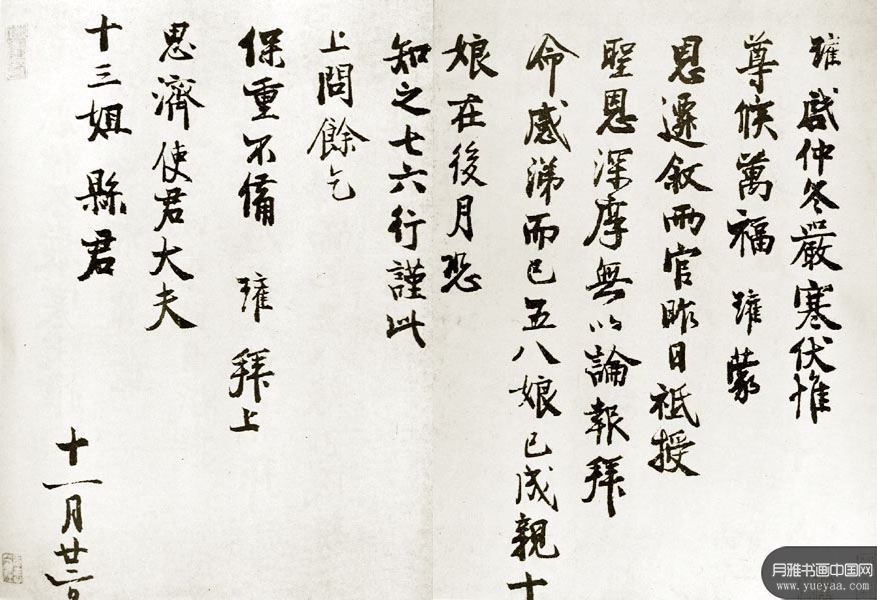 瓘啟仲冬嚴寒伏惟
尊候萬福 瓘蒙
恩遷敘兩官昨日祗授
聖恩深厚無以論報拜
命感涕而已五八娘已成親十
娘在後月恐
知之七六行謹此
上問餘乞
保重不備 瓘拜上
思濟使君大夫
十三姐縣君
十一月廿二日
月雅书画中国网
www.yueyaa.com